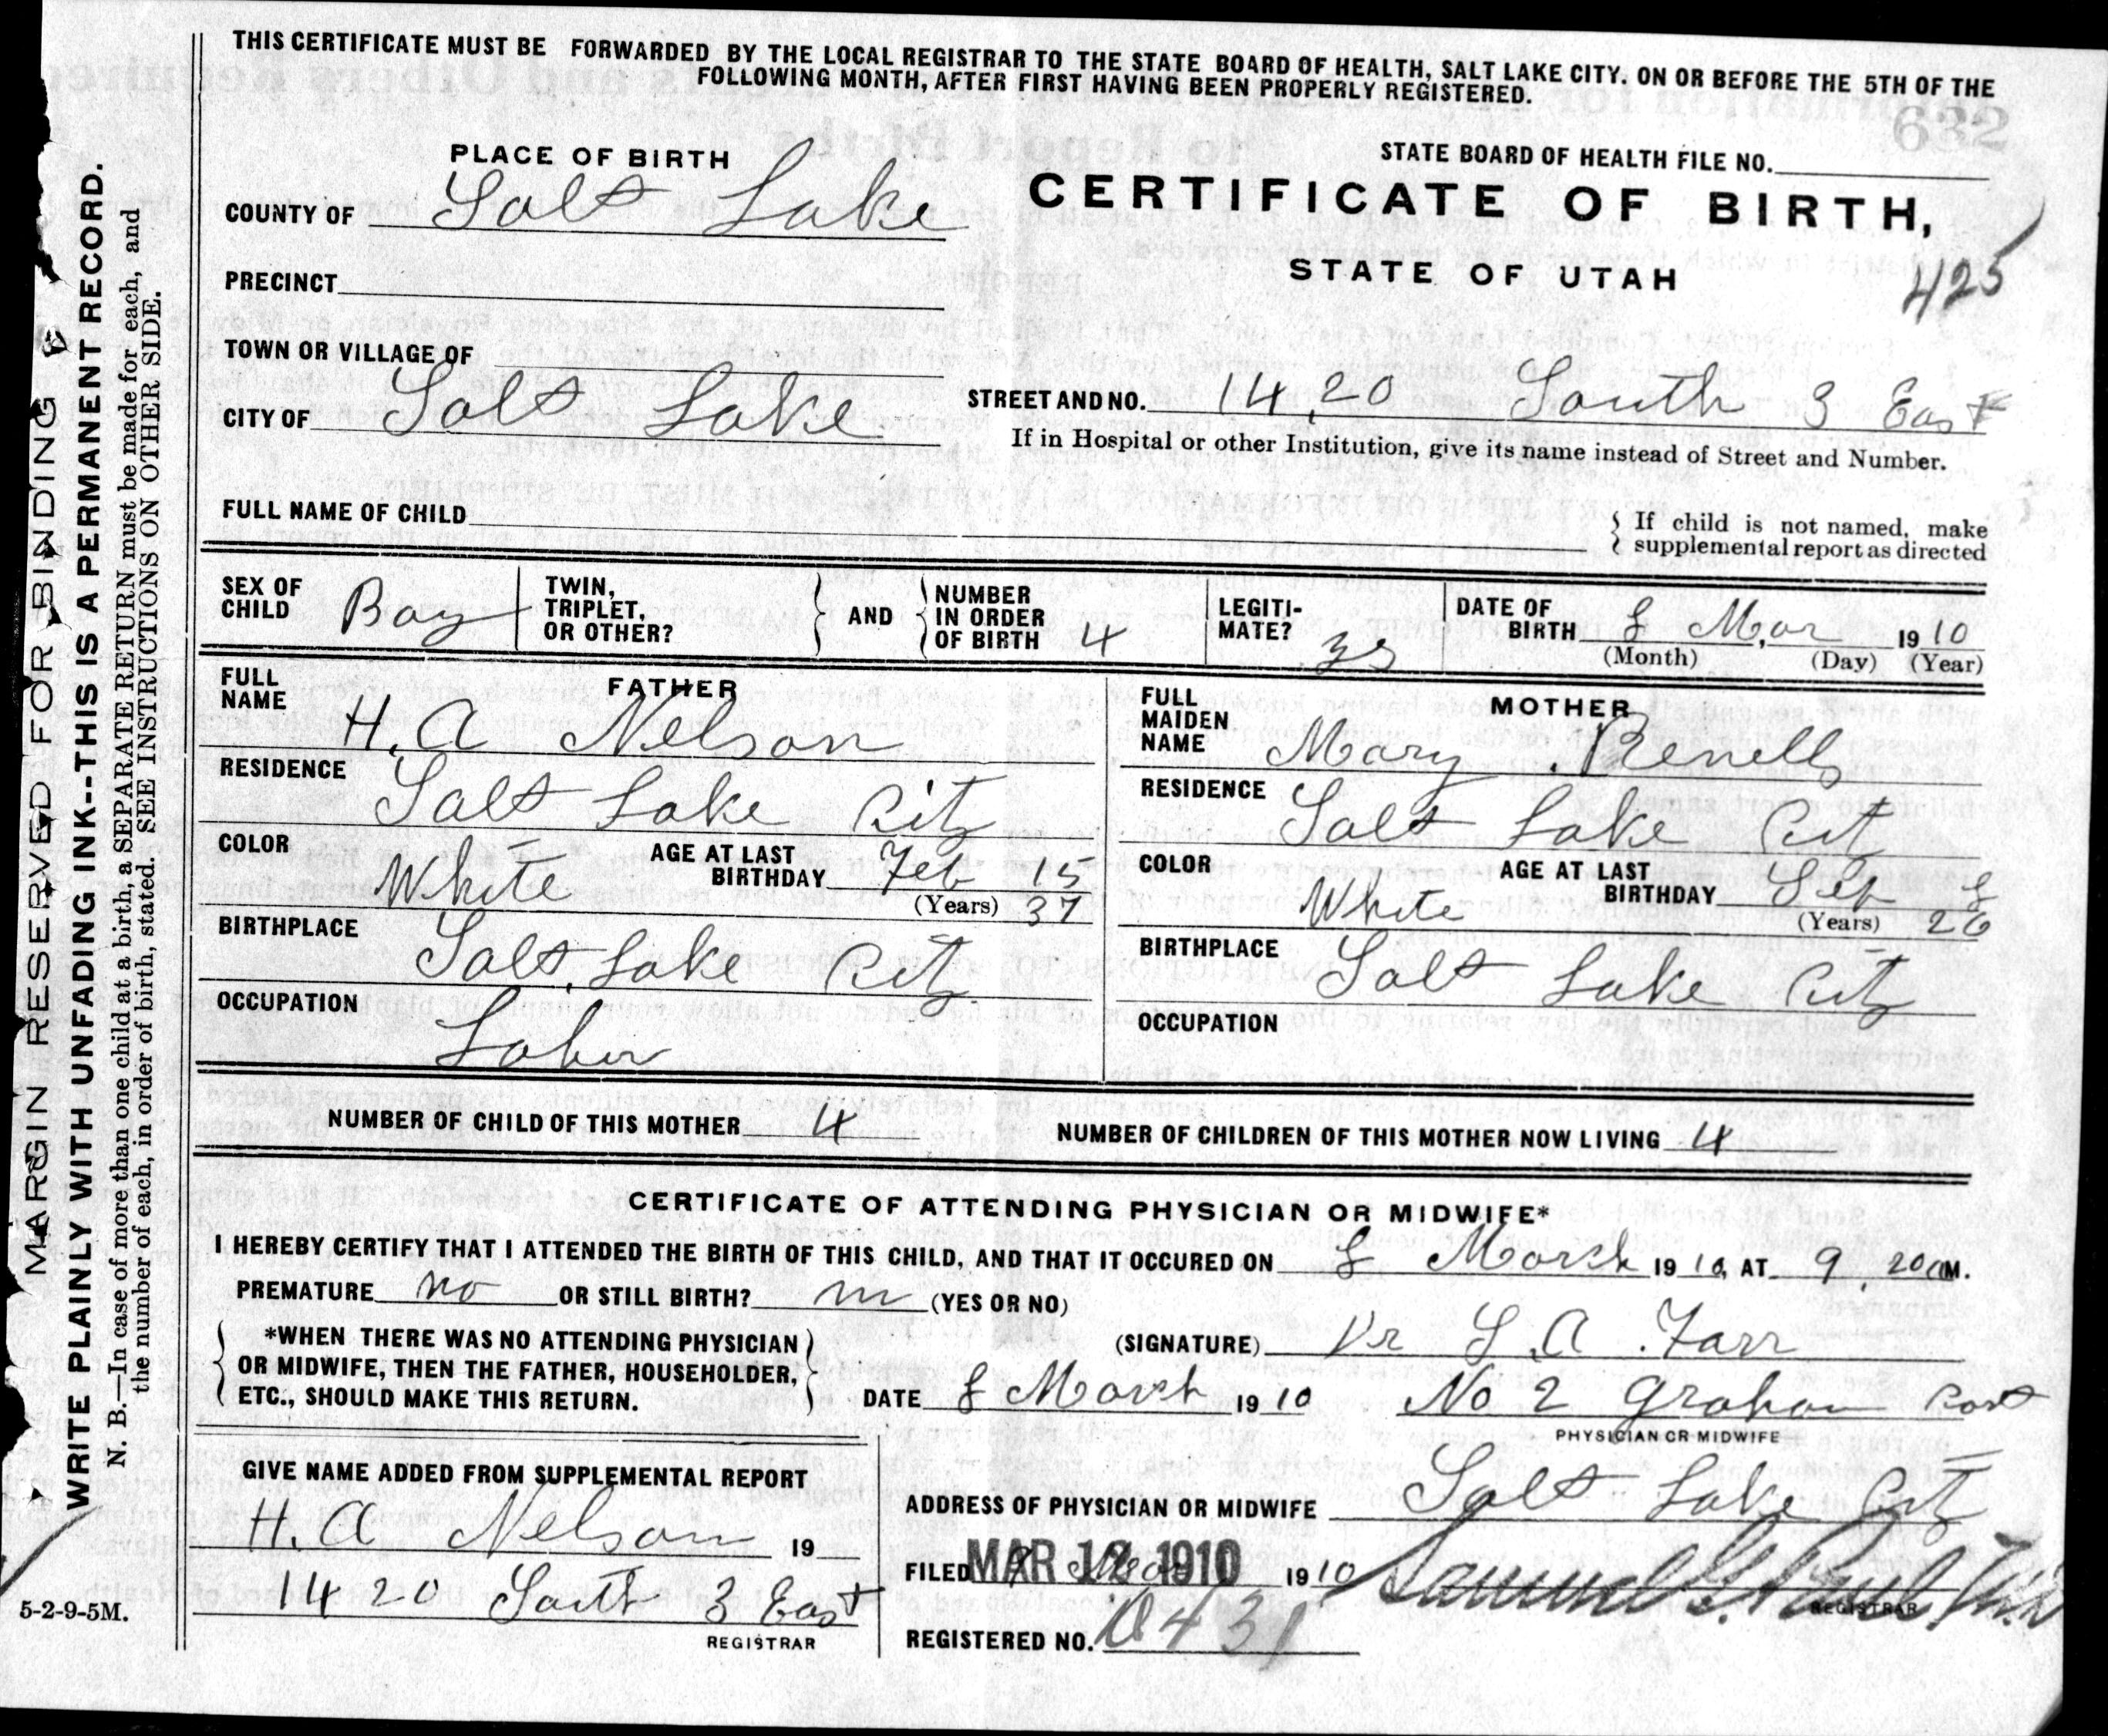 THIS CERTIFICATE MUST BE FORWARDED BY THE LOCAL REGISTRAR TO THE STATE BOARD OF HEALTH, SALT LAKE CITY. ON OR BEFORE THE 5TH OF THE
FOLLOWING MONTH, AFTER FIRST HAVING BEEN PROPERLY REGISTERED.
632
PLACE OF BIRTH
STATE BOARD OF HEALTH FILE NO.
COUNTY OF Salt Lake
CERTIFICATE OF BIRTH,
STATE OF UTAH
425
PRECINCT
TOWN OR VILLAGE OF
CITY OF Salt Lake
STREET AND NO. 1420 South 3 East
If in Hospital or other Institution, give its name instead of Street and Number.
FULL NAME OF CHILD
If child is not named, make
supplemental report as directed
SEX OF CHILD Boy
TWIN, TRIPLET, OR OTHER?
AND
NUMBER IN ORDER OF BIRTH 4
LEGITI-MATE? ys
DATE OF BIRTH 8 Mar 1910
(Month) (Day) (Year)
FATHER
FULL NAME H. A Nelson
RESIDENCE Salt Lake City
COLOR White
AGE AT LAST BIRTHDAY Feb 15
(Years) 37
BIRTHPLACE Salt Lake City
OCCUPATION Labor
MOTHER
FULL MAIDEN NAME Mary
RESIDENCE Salt Lake Cit
COLOR White
AGE AT LAST BIRTHDAY Sep 8
(Years) 26
BIRTHPLACE Salt Lake City
OCCUPATION
NUMBER OF CHILD OF THIS MOTHER 4
NUMBER OF CHILDREN OF THIS MOTHER NOW LIVING 4
CERTIFICATE OF ATTENDING PHYSICIAN OR MIDWIFE*
I HEREBY CERTIFY THAT I ATTENDED THE BIRTH OF THIS CHILD, AND THAT IT OCCURED ON 8 March 1910, AT 9.20 a M.
PREMATURE no OR STILL BIRTH? no (YES OR NO)
*WHEN THERE WAS NO ATTENDING PHYSICIAN
OR MIDWIFE, THEN THE FATHER, HOUSEHOLDER,
ETC., SHOULD MAKE THIS RETURN.
(SIGNATURE) Dr L. A. Farr
DATE 8 March 1910
No 2 Graham Cort
PHYSICIAN OR MIDWIFE
GIVE NAME ADDED FROM SUPPLEMENTAL REPORT
H. A Nelson 19
1420 South 3 East
REGISTRAR
ADDRESS OF PHYSICIAN OR MIDWIFE Salt Lake Cit
FILED MAR 12 1910 1910
REGISTRAR
REGISTERED NO. 0431
MARGIN RESERVED FOR BINDING
WRITE PLAINLY WITH UNFADING INK--THIS IS A PERMANENT RECORD.
N. B.—In case of more than one child at a birth, a SEPARATE RETURN must be made for each, and
the number of each, in order of birth, stated. SEE INSTRUCTIONS ON OTHER SIDE.
5-2-9-5M.